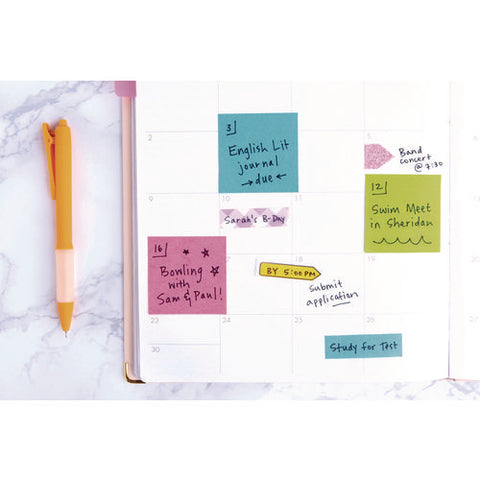 2
3
English Lit
journal
→ due ←
Band
concert
@ 7:30
9
10
12
Swim Meet
in Sheridan
Sarah's B-Day
16
Bowling
with
Sam & Paul!
17
18
19
BY 5:00PM
Submit
application
25
26
Study for Test
30